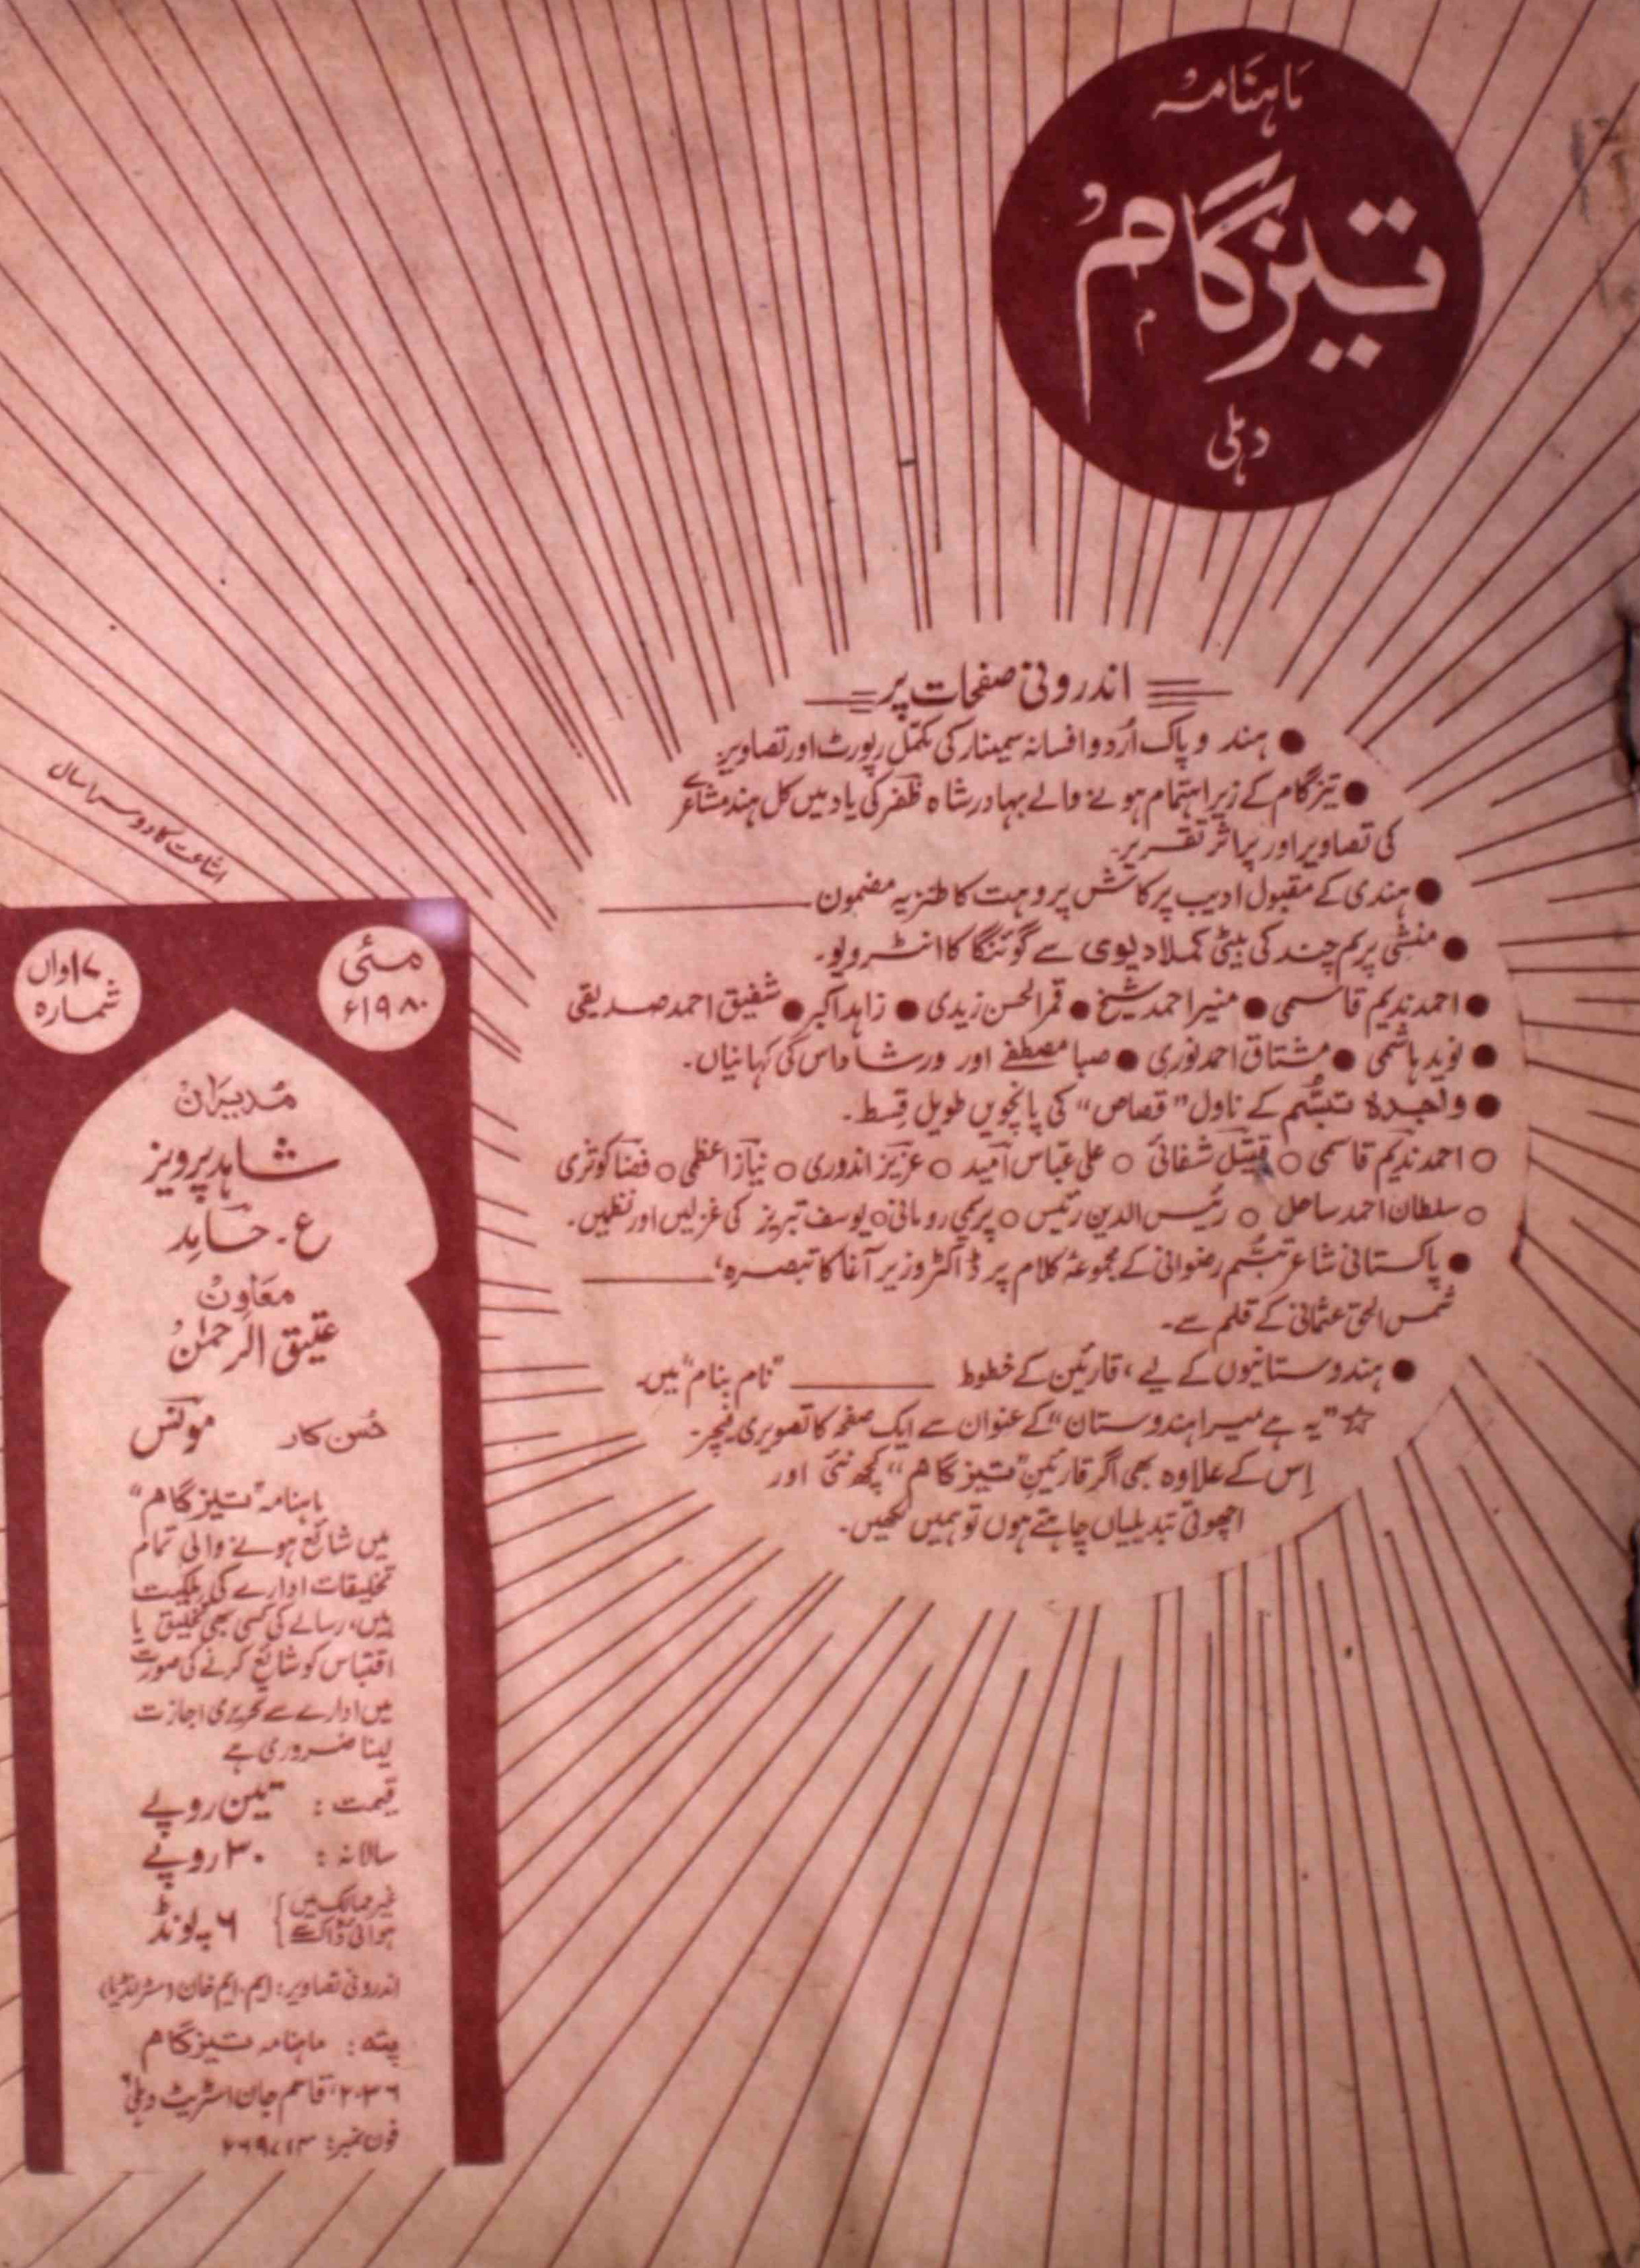 ماہنامہ
تیزگام
دہلی
اندرونی صفحات پر
● ہند و پاک اُردو افسانہ سمینار کی مکمل رپورٹ اور تصاویر۔
● تیزگام کے زیر اہتمام ہونے والے بہادر شاہ ظفر کی یاد میں کل ہند مشاعرے
کی تصاویر اور پر اثر تقریر۔
● ہندی کے مقبول ادیب پرکاش پروہت کا طنزیہ مضمون
● منشی پریم چند کی بیٹی کملا دیوی سے گوئنکا کا انٹرویو۔
● احمد ندیم قاسمی ● منیر احمد شیخ ● قمر الحسن زیدی ● زاہد اکبر ● شفیق احمد صدیقی
● نوید ہاشمی ● مشتاق احمد نوری ● صبا مصطفےٰ اور ورشا داس کی کہانیاں۔
● واجدہ تبسّم کے ناول "قصاص" کی پانچویں طویل قسط۔
○ احمد ندیم قاسمی ○ قتیل شفائی ○ علی عباس امید ○ عزیز اندوری ○ نیاز اعظمی ○ فضا کوثری
○ سلطان احمد ساحل ○ رئیس الدین رئیس ○ پریمی رومانی ○ یوسف تبریز کی غزلیں اور نظمیں۔
● پاکستانی شاعر تبسّم رضوانی کے مجموعۂ کلام پر ڈاکٹر وزیر آغا کا تبصرہ،
شمس الحق عثمانی کے قلم سے۔
● ہندوستانیوں کے لیے، قارئین کے خطوط "نام بنام" میں۔
☆ "یہ ہے میرا ہندوستان" کے عنوان سے ایک صفحہ کا تصویری فیچر۔
اِس کے علاوہ بھی اگر قارئینِ "تیزگام" کچھ نئی اور
اچھوتی تبدیلیاں چاہتے ہوں تو ہمیں لکھیں۔
اشاعت کا دوسرا سال
مئی
۱۹۸۰ء
۱۷واں
شمارہ
مُدیران
شاہد پرویز
ع۔ حامِد
معاون
عتیق الرحمٰن
حُسن کار مونس
ماہنامہ "تیزگام"
میں شائع ہونے والی تمام
تخلیقات ادارے کی ملکیت
ہیں، رسالے کی کسی بھی تخلیق یا
اقتباس کو شائع کرنے کی صورت
میں ادارے سے تحریری اجازت
لینا ضروری ہے
قیمت : تین روپے
سالانہ : ۳۰ روپے
غیر ممالک میں
ہوائی ڈاک سے } ۶ پونڈ
اندرونی تصاویر: ایم۔ ایم خان
پتہ : ماہنامہ تیزگام
۲۰۳۶، قاسم جان اسٹریٹ دہلی ۶
فون نمبر: ۲۶۹۷۱۳